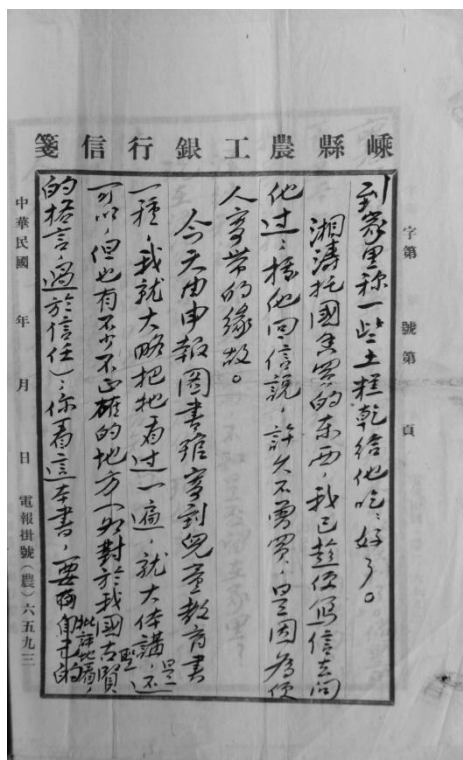 嵊縣農工銀行信箋
字第　　號第　　頁
到家里稱一些土糕乾給他吃，好了。
湘濤托國裏買的东西，我已趁便寫信去问
他过，據他回信說，許久不曾買，是因為便
人寄帶的緣故。
今天由申報圖書館寄到兒童教育書
一種，我就大略把牠看过一遍，就大体講，是还
可以，但也有不少不正確的地方（如對於我國古聖賢
的格言，過於信任），你看這本書，要有自主的批評地看，
中華民國　　年　　月　　日　電報掛號（農）六五九三